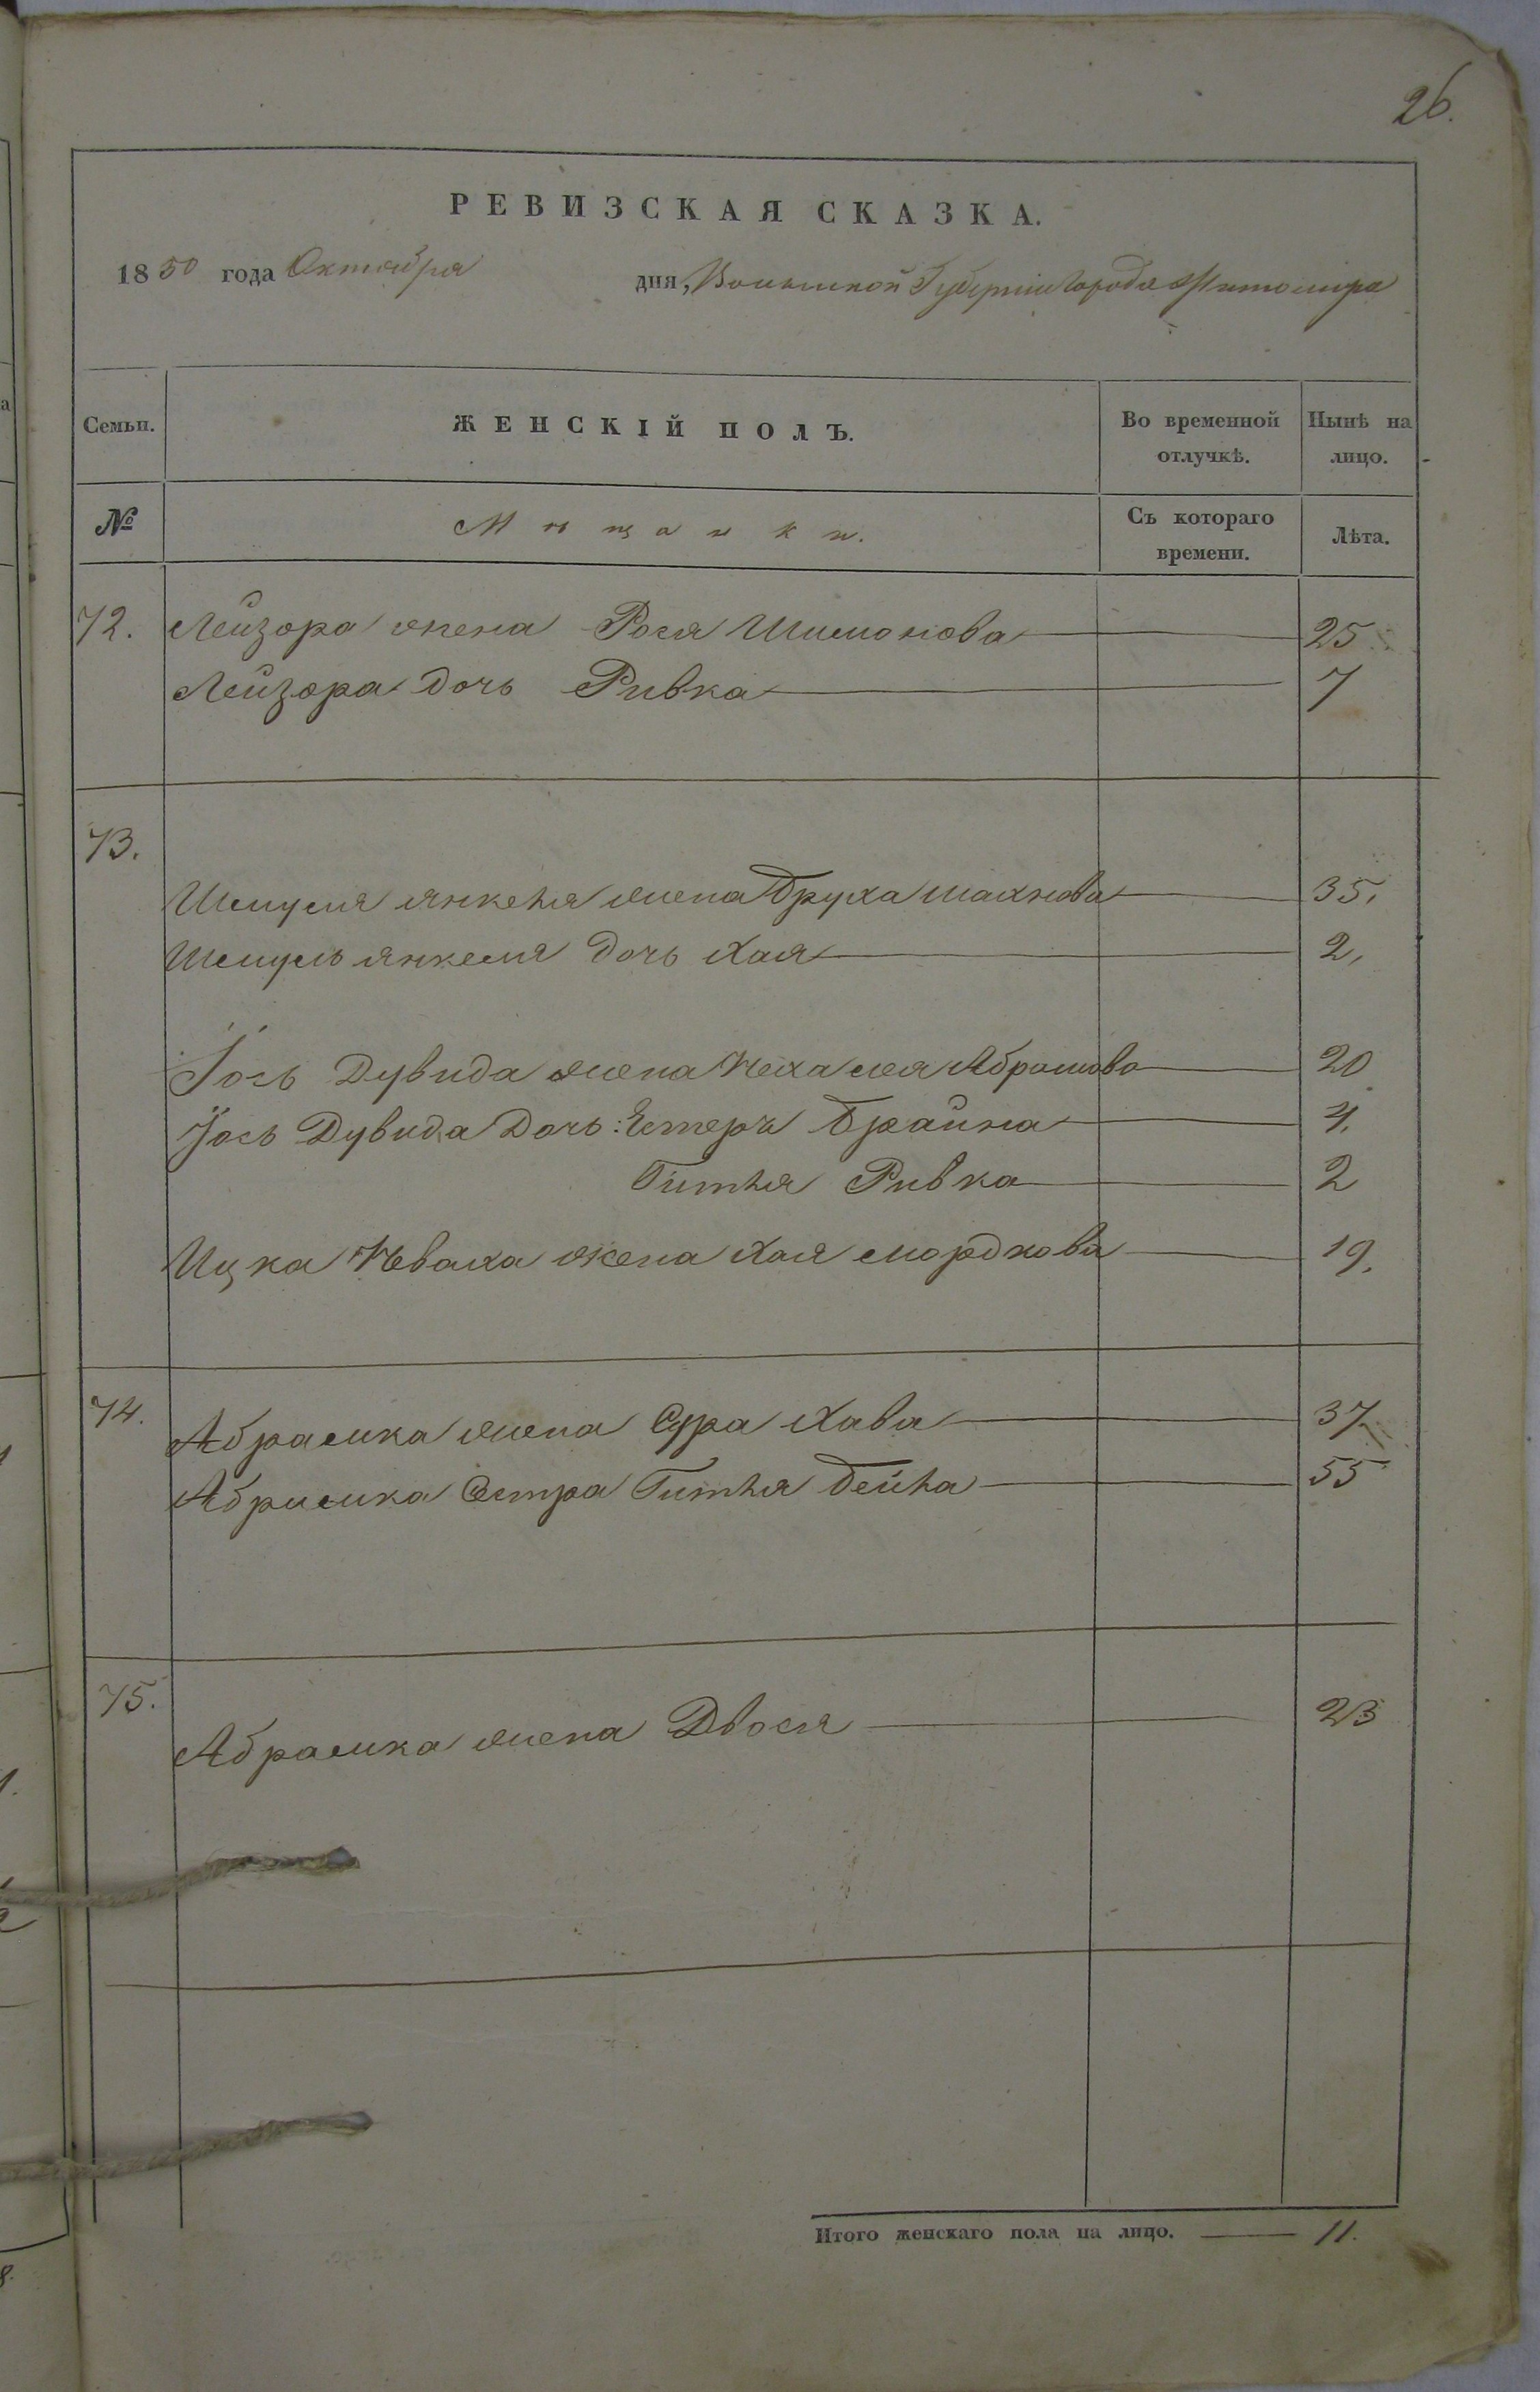 26.
РЕВИЗСКАЯ СКАЗКА.
1850 года Октября дня, Волынской Губерніи Города Житомира
Семьи. ЖЕНСКІЙ ПОЛЪ. Во временной отлучкѣ. Нынѣ на лицо.
№ Мѣщанки. Съ котораго времени. Лѣта.
72. Лейзора жена Рося Шимонова 25
Лейзора дочь Ривка 7
73.
Шмуля Янкеля жена Бруха Шахнова 35.
Шмуль Янкеля дочь Хая 2,
Іось Дувида жена Неха Лея Абрамова 20
Іось Дувида Дочь: Естеръ Брайна 4.
Гитля Ривка 2
Ицка Неваха жена Хая Мордкова 19.
74.
Абрамка жена Сура Хава 37
Абрамка Сестра Гитля Бейла 55
75.
Абрамка жена Двося 23
Итого женскаго пола на лицо. 11.